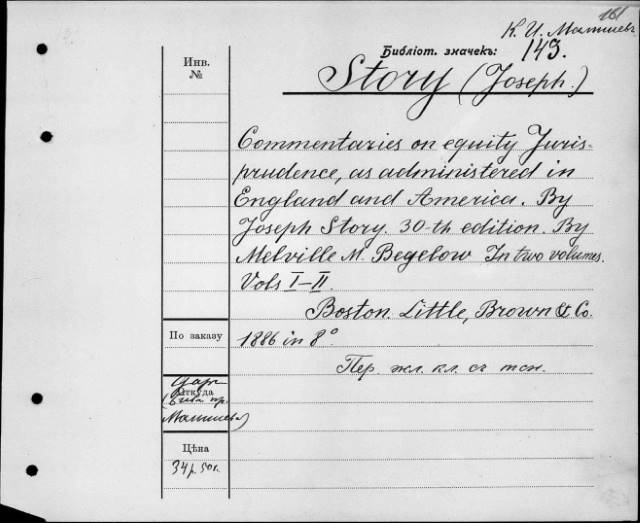 161
К. И. Малышевъ
Библіот. значекъ: 143.
Story (Joseph.)
Инв.
№
Commentaries on equity Juris-
prudence, as administered in
England and America. By
Joseph Story. 30-th edition. By
Melville M. Begelow In two volumes.
Vols I–II.
Boston. Little, Brown & Co.
По заказу
1886 in 8°
Пер. жл. кл. съ тсн.
Даръ
Откуда
Малышева)
Цѣна
34 р. 50 к.